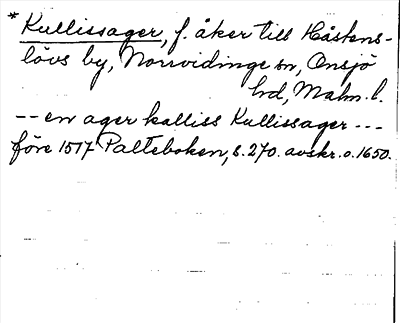 * Kullissager, f. åker till Håstens-
lövs by, Norrvidinge sn, Onsjö
hd, Malm. l.
-- en ager kalliss Kullissager ---
före 1517 Palteboken, s. 270. avskr. o. 1650.